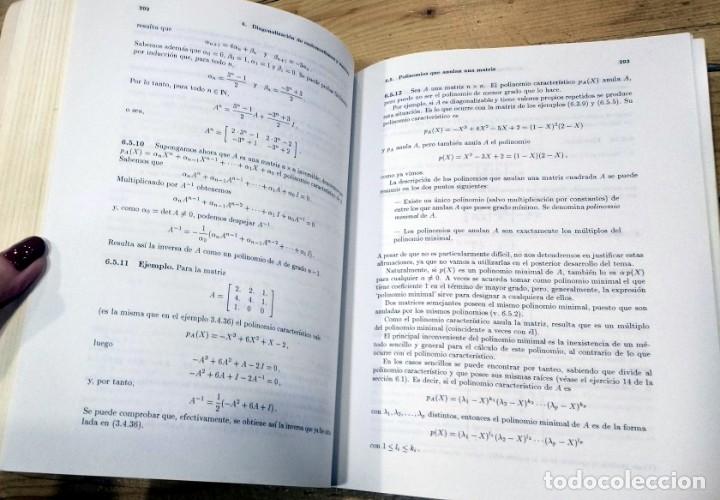 202
6. Diagonalización de endomorfismos y matrices
resulta que
αₙ₊₁ = 6αₙ + βₙ y βₙ₊₁ = −3αₙ.
por inducción que, para todo n,
Por lo tanto, para todo n ∈ ℕ,
o sea,
6.5.10 Supongamos ahora que A es una matriz n × n inversible, de
Sabemos que
αₙAⁿ + αₙ₋₁Aⁿ⁻¹ + ⋯ + α₁A + α₀I = 0.
Multiplicado por A⁻¹ obtenemos
αₙAⁿ⁻¹ + αₙ₋₁Aⁿ⁻² + ⋯ + α₁I + α₀A⁻¹ = 0
y, como α₀ = det A ≠ 0, podemos despejar A⁻¹:
A⁻¹ = −1/α₀ (αₙAⁿ⁻¹ + αₙ₋₁Aⁿ⁻² + ⋯ + α₁I).
Resulta así la inversa de A como un polinomio de A de grado n − 1.
6.5.11 Ejemplo. Para la matriz
A = [2, 2, 1,
4, 4, 1,
1, 0, 0]
(es la misma que en el ejemplo 3.4.36) el polinomio característico vale
p_A(X) = −X³ + 6X² + X − 2,
luego
−A³ + 6A² + A − 2I = 0,
−A² + 6A + I − 2A⁻¹ = 0
y, por tanto,
A⁻¹ = 1/2 (−A² + 6A + I).
Se puede comprobar que, efectivamente, se obtiene así la inversa que ya
lada en (3.4.36).
6.5. Polinomios que anulan una matriz
203
6.5.12 Sea A una matriz n × n. El polinomio característico p_A(X) anula A,
pero puede no ser el polinomio de menor grado que lo hace.
Por ejemplo, si A es diagonalizable y tiene valores propios repetidos se produce
esta situación. Es lo que ocurre con la matriz de los ejemplos (6.3.9) y (6.5.5). Su
polinomio característico es
p_A(X) = −X³ + 4X² − 5X + 2 = (1 − X)²(2 − X)
y p_A anula A, pero también anula A el polinomio
p(X) = X² − 3X + 2 = (1 − X)(2 − X),
como ya vimos.
La descripción de los polinomios que anulan una matriz cuadrada A se puede
resumir en los dos puntos siguientes:
— Existe un único polinomio (salvo multiplicación por constantes) de
entre los que anulan A que posee grado mínimo. Se denomina polinomio
minimal de A.
— Los polinomios que anulan A son exactamente los múltiplos del
polinomio minimal.
A pesar de que no es particularmente difícil, no nos detendremos en justificar estas
afirmaciones, ya que no vamos a utilizarlas en el posterior desarrollo del tema.
Naturalmente, si p(X) es un polinomio minimal de A, también lo es α p(X)
para cualquier α ≠ 0. A veces se acuerda tomar como polinomio minimal el que
tiene coeficiente 1 en el término de mayor grado, pero, generalmente, la expresión
'polinomio minimal' sirve para designar a cualquiera de ellos.
Dos matrices semejantes poseen el mismo polinomio minimal, puesto que son
anuladas por los mismos polinomios (v. 6.5.2).
Como el polinomio característico anula la matriz, resulta que es un múltiplo
del polinomio minimal (coincidente a veces con él).
El principal inconveniente del polinomio minimal es la inexistencia de un mé-
todo sencillo y general para el cálculo de este polinomio, al contrario de lo que
ocurre con el polinomio característico.
En los casos sencillos se puede encontrar por tanteo, sabiendo que divide al
polinomio característico y que posee sus mismas raíces (véase el ejercicio 14 de la
sección 6.1). Es decir, si el polinomio característico de A es
p_A(X) = (λ₁ − X)^k₁ (λ₂ − X)^k₂ … (λₚ − X)^kₚ
con λ₁, λ₂, …, λₚ distintos, entonces el polinomio minimal de A es de la forma
p(X) = (λ₁ − X)^l₁ (λ₂ − X)^l₂ … (λₚ − X)^lₚ
con 1 ≤ lᵢ ≤ kᵢ.
todocoleccion